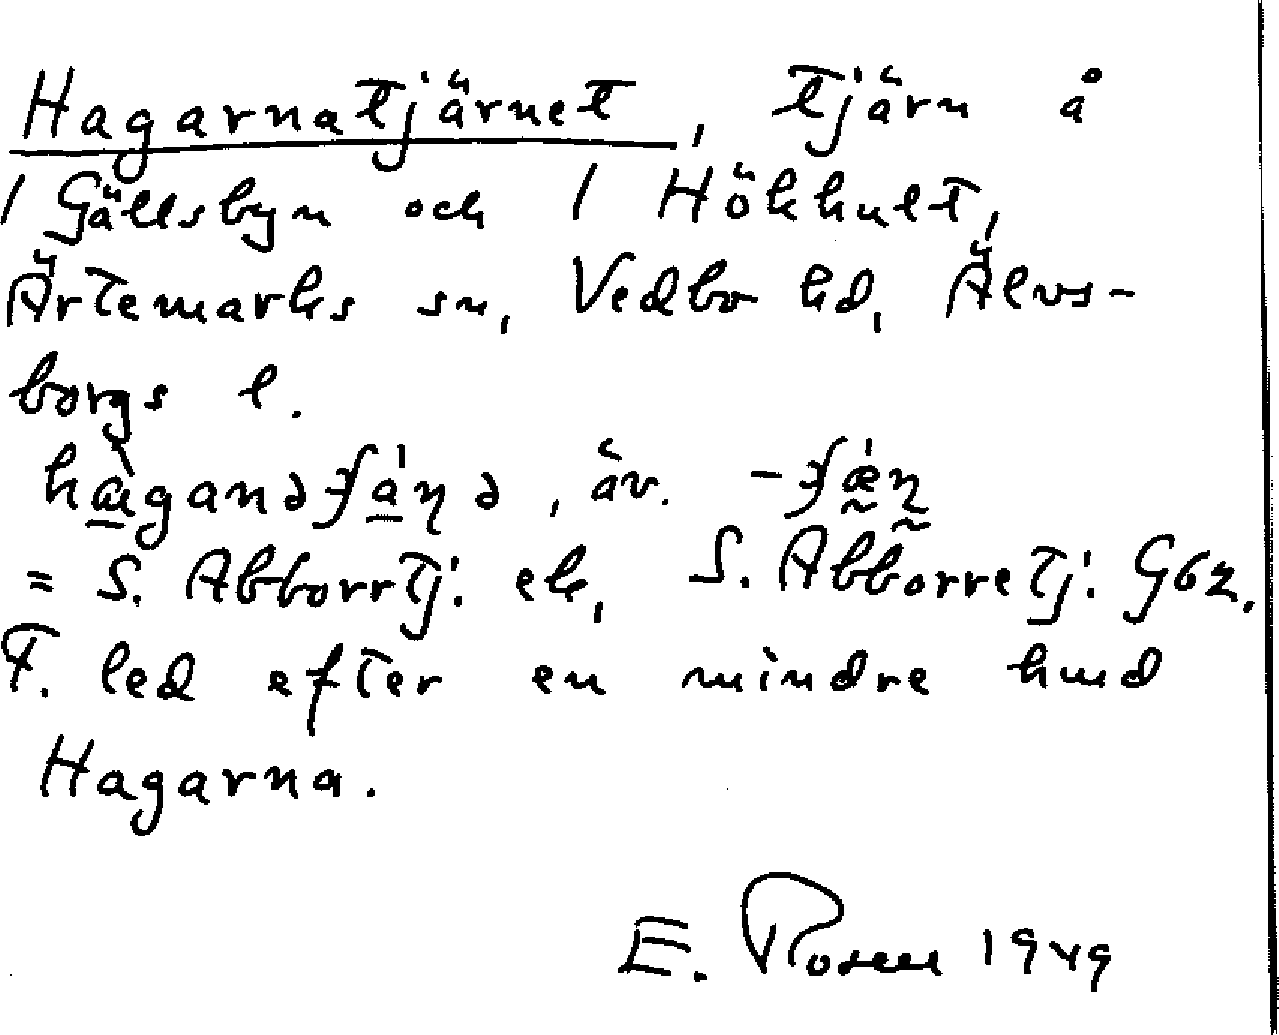 Hagarnatjärnet, tjärn å
1 Gällsbyn och 1 Hökhult,
Ärtemarks sn, Vedbo hd, Älvs-
borgs l.
, äv.
= S. Abborrtj. ek, S. Abborretj. G62.
F. led efter en mindre hmd
Hagarna.
E. Rosen 1949